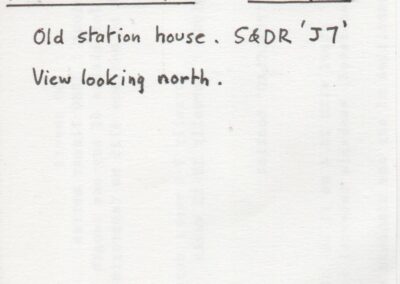 Old station house. S&DR 'J7'
View looking north.